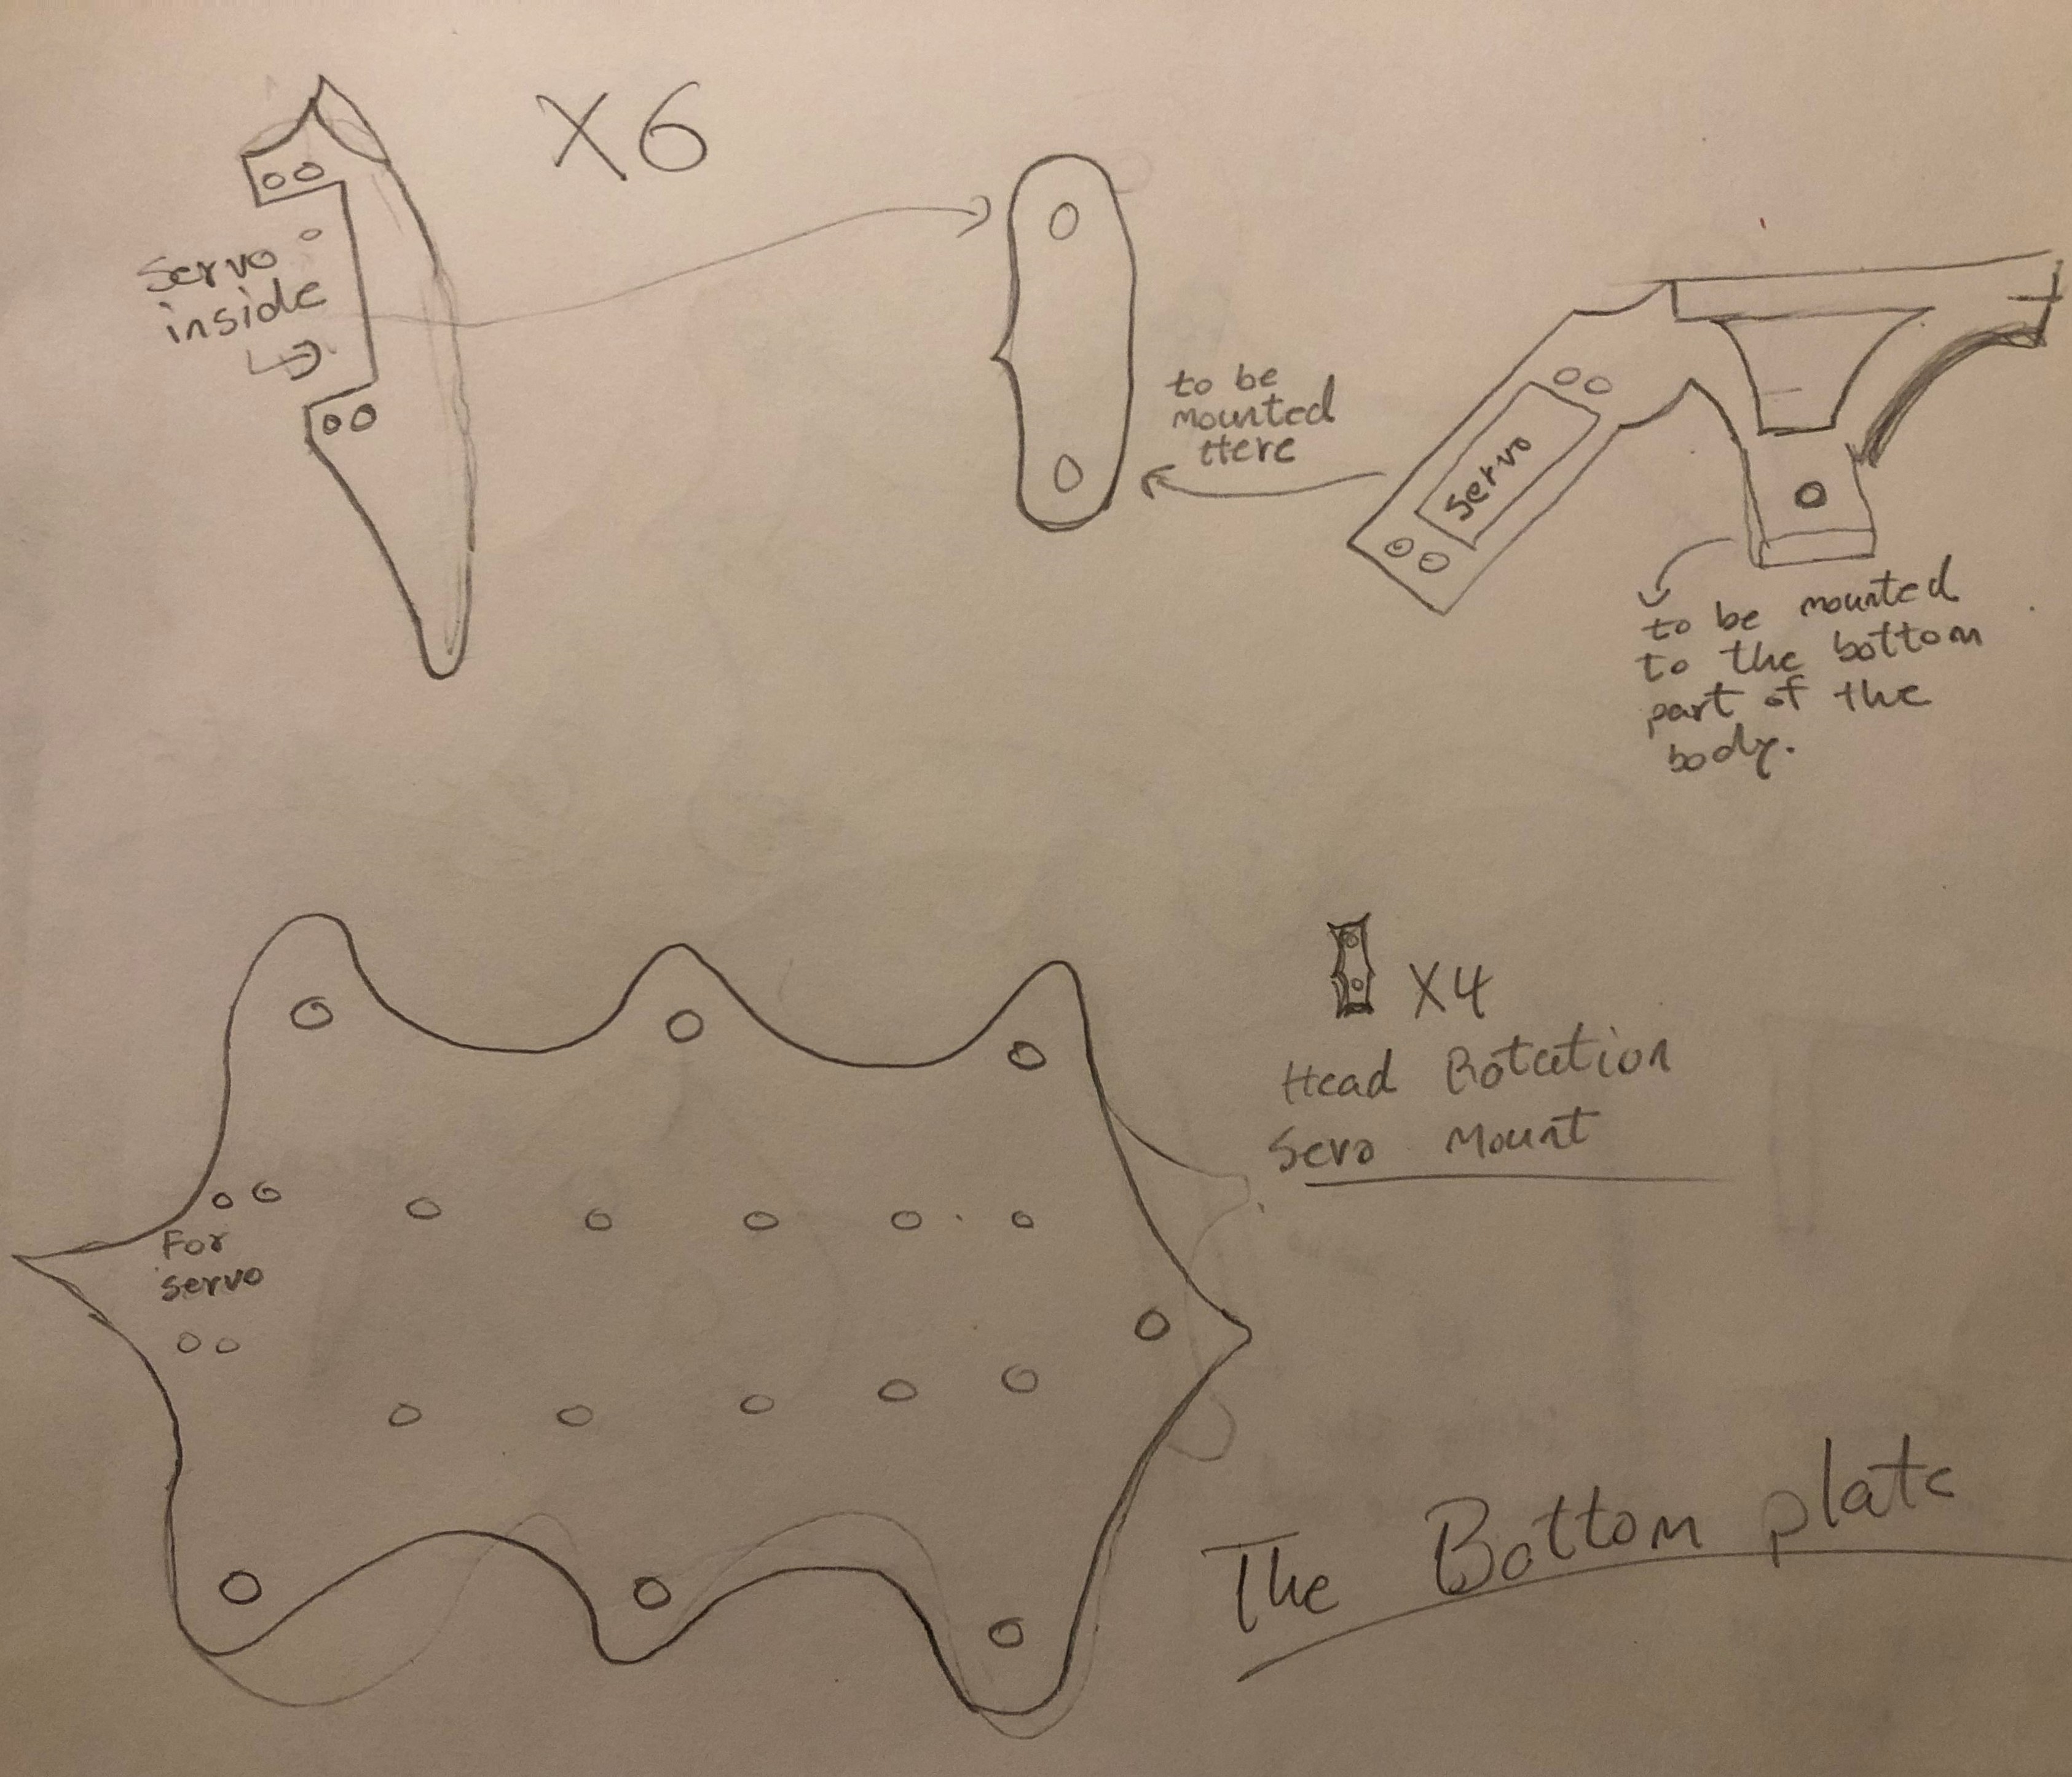 X6
Servo
inside
to be
mounted
Here
Servo
to be mounted
to the bottom
part of the
body.
X4
Head Rotation
Servo Mount
For
servo
The Bottom plate